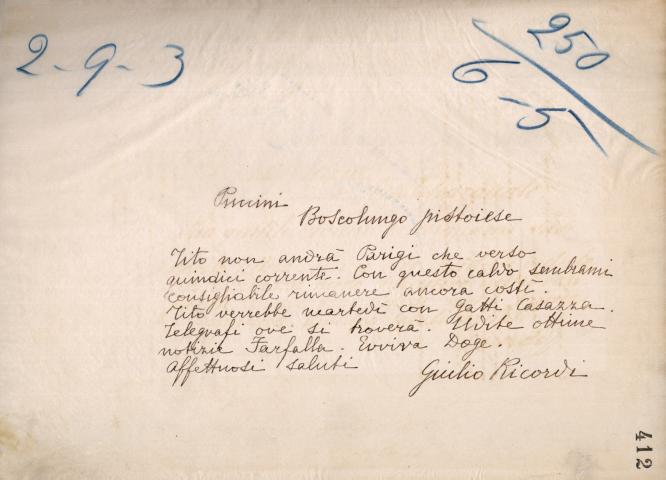 2-9-3
250
6-5
Puccini
Boscolungo pistoiese
Tito non andrà Parigi che verso
quindici corrente. Con questo caldo sembrami
consigliabile rimanere ancora costì.
Tito verrebbe martedì con Gatti Casazza.
Telegrafi ove si troverà. Udite ottime
notizie Farfalla. Evviva Doge.
Affettuosi saluti
Giulio Ricordi
412